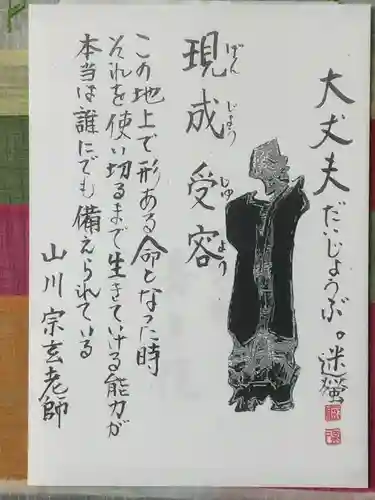 大丈夫だいじょうぶ。迷蛍
現成受容
げんじょうじゅよう
この地上で形ある命となった時
それを使い切るまで生きていける能力が
本当は誰にでも備えられている
山川宗玄老師